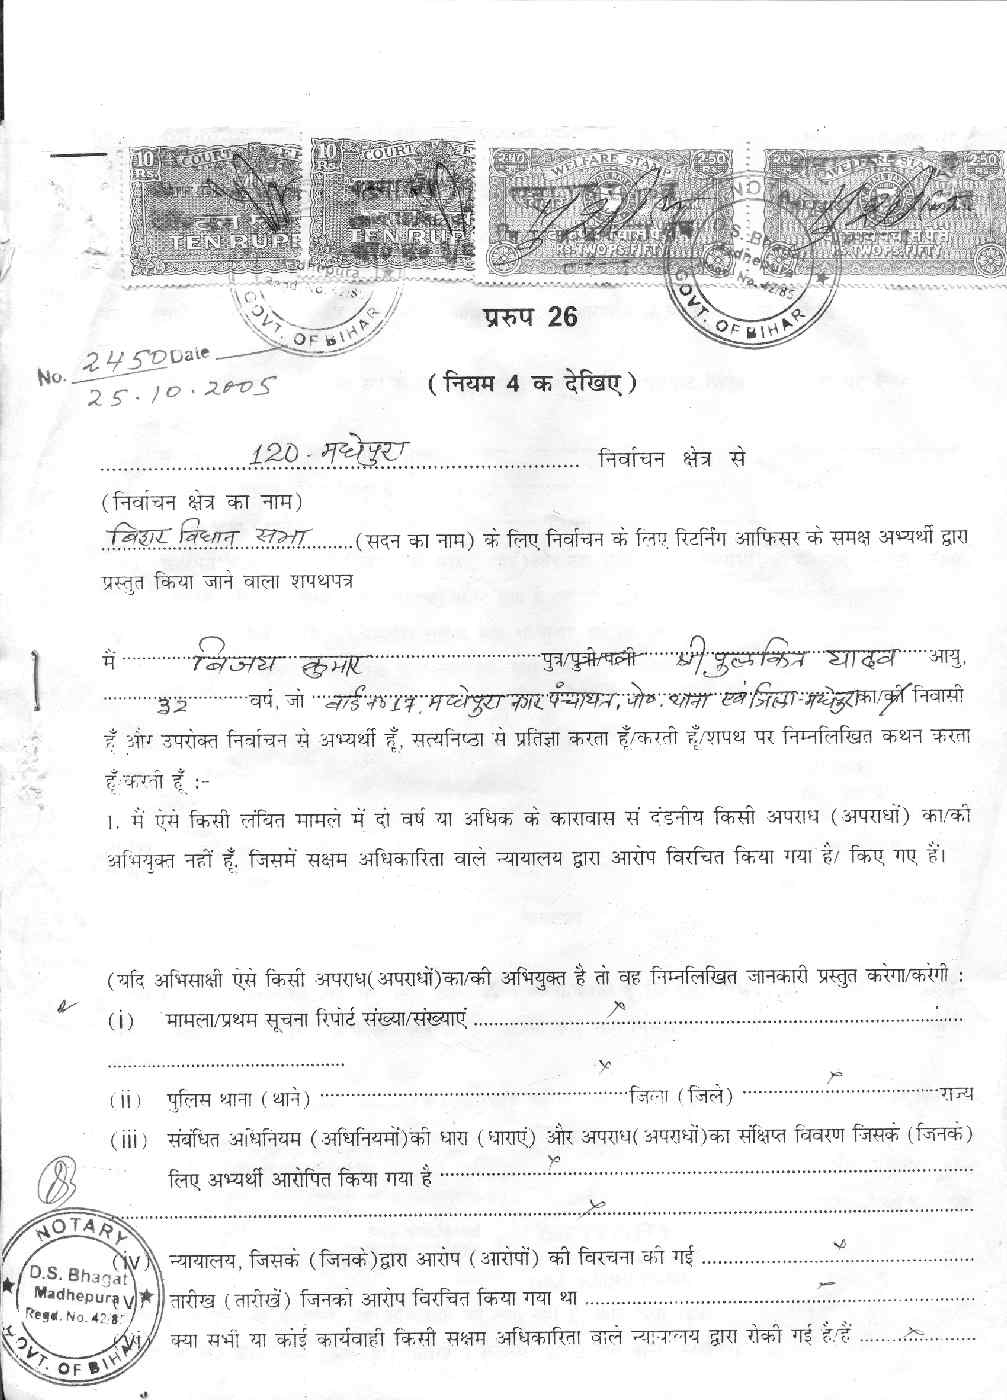 10 COURT
RS.
TEN RUP
10 COURT
RS.
TEN RUP
2.50 WELFARE STAMP 2.50
WELFARE STAMP 2.50
Madhepura
Regd No. 42/85
GOVT. OF BIHAR
D.S. Bhagat
Madhepura
Regd. No. 42/85
GOVT. OF BIHAR
प्ररुप 26
No. 2450 Date
25.10.2005
( नियम 4 क देखिए )
120 - मधेपुरा निर्वाचन क्षेत्र से
(निर्वाचन क्षेत्र का नाम)
बिहार विधान सभा (सदन का नाम) के लिए निर्वाचन के लिए रिटर्निंग आफिसर के समक्ष अभ्यर्थी द्वारा
प्रस्तुत किया जाने वाला शपथपत्र
मैं बिजय कुमार पुत्र/पुत्री/पत्नी श्री पुलकित यादव आयु,
32 वर्ष, जो वार्ड नं० 17, मधेपुरा नगर पंचायत, पो०, थाना एवं जिला-मधेपुरा का/की निवासी
हूँ और उपरोक्त निर्वाचन से अभ्यर्थी हूँ, सत्यनिष्ठा से प्रतिज्ञा करता हूँ/करती हूँ/शपथ पर निम्नलिखित कथन करता
हूँ/करती हूँ :-
1. मैं ऐसे किसी लंबित मामले में दो वर्ष या अधिक के कारावास से दंडनीय किसी अपराध (अपराधों) का/की
अभियुक्त नहीं हूँ, जिसमें सक्षम अधिकारिता वाले न्यायालय द्वारा आरोप विरचित किया गया है/ किए गए हैं।
(यदि अभिसाक्षी ऐसे किसी अपराध(अपराधों)का/की अभियुक्त है तो वह निम्नलिखित जानकारी प्रस्तुत करेगा/करेगी :
(i) मामला/प्रथम सूचना रिपोर्ट संख्या/संख्याएं ×
×
(ii) पुलिस थाना (थाने) जिला (जिले) × राज्य
(iii) संबंधित अधिनियम (अधिनियमों)की धारा (धाराएं) और अपराध(अपराधों)का संक्षिप्त विवरण जिसके (जिनके)
लिए अभ्यर्थी आरोपित किया गया है ×
×
(iv) न्यायालय, जिसके (जिनके)द्वारा आरोप (आरोपों) की विरचना की गई ×
(v) तारीख (तारीखें) जिनको आरोप विरचित किया गया था –
(vi) क्या सभी या कोई कार्यवाही किसी सक्षम अधिकारिता वाले न्यायालय द्वारा रोकी गई है/हैं ×
NOTARY
D.S. Bhagat
Madhepura
Regd. No. 42/85
GOVT. OF BIHAR